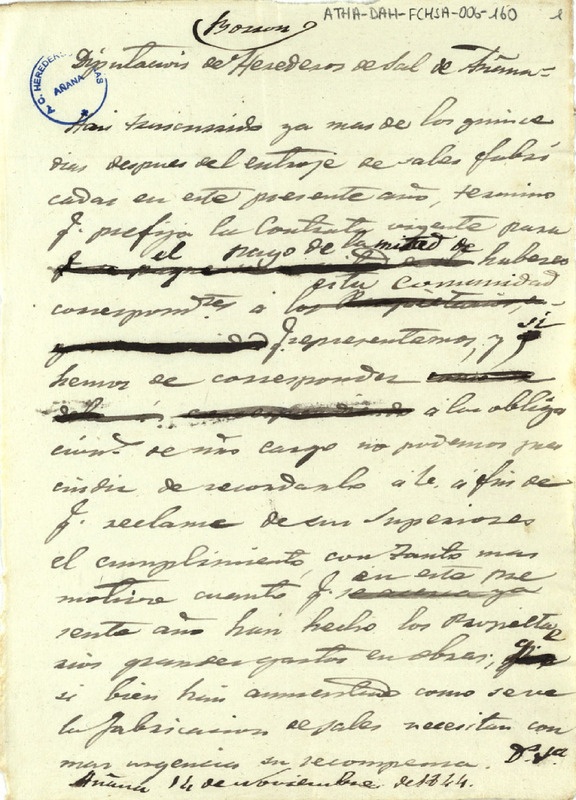 ATHA-DAH-FCHSA-006-160
Borron
Diputacion de Herederos de Sal de Añana=
AÑANA
Han trascurrido ya mas de los quince
dias despues del entroje de sales fabri
cadas en este presente año, termino
q. prefija la Contrata vigente para
el pago de la mitad de
haberes
esta Comunidad
correspond.tes á los Propietarios,
q. representamos, y si
hemos de corresponder
á las obliga
cion.s de nro cargo no podemos pres
cindir de recordarlo á V. á fin de
q. reclame de sus Superiores
el cumplimiento, con tanto mas
motivo cuanto q. en este pre
sente año han hecho los Propieta
rios grandes gastos en obras, q.e
si bien han aumentado como se ve
la fabricacion de sales necesitan con
mas urgencia su recompensa. D.s g.e
Añana 14 de noviembre de 1844.